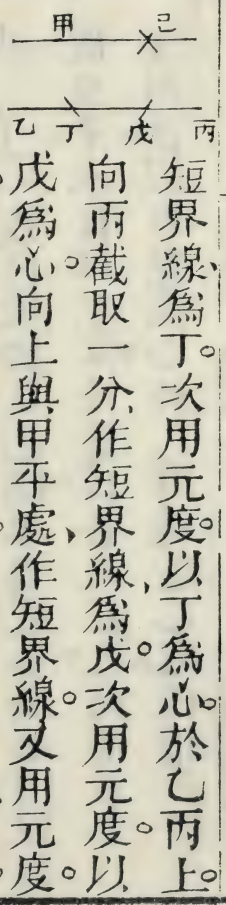 甲 己
乙 丁 戊 丙
短界線、爲丁。次用元度。以丁爲心。於乙丙上。
向丙截取一分、作短界線、爲戊。次用元度。以
戊爲心。向上與甲平處、作短界線。又用元度。